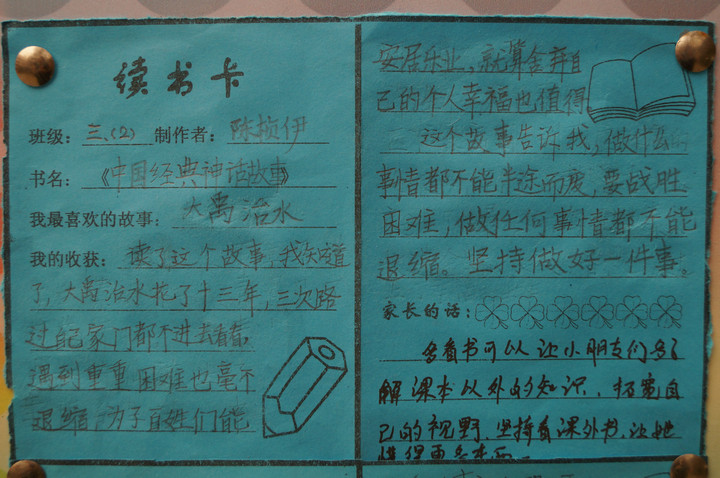 读书卡
班级：三、(2) 制作者：陈桢伊
书名：《中国经典神话故事》
我最喜欢的故事：大禹治水
我的收获：读了这个故事，我知道
了，大禹治水花了十三年，三次路
过自己家门都不进去看看，
遇到重重困难也毫不
退缩，为了百姓们能
安居乐业，就算舍弃自
己的个人幸福也值得。
这个故事告诉我，做什么
事情都不能半途而废，要战胜
困难，做任何事情都不能
退缩。坚持做好一件事。
家长的话：
多看书可以让小朋友们多了
解课本以外的知识，拓宽自
己的视野，坚持看课外书，让她
懂得更多东西。